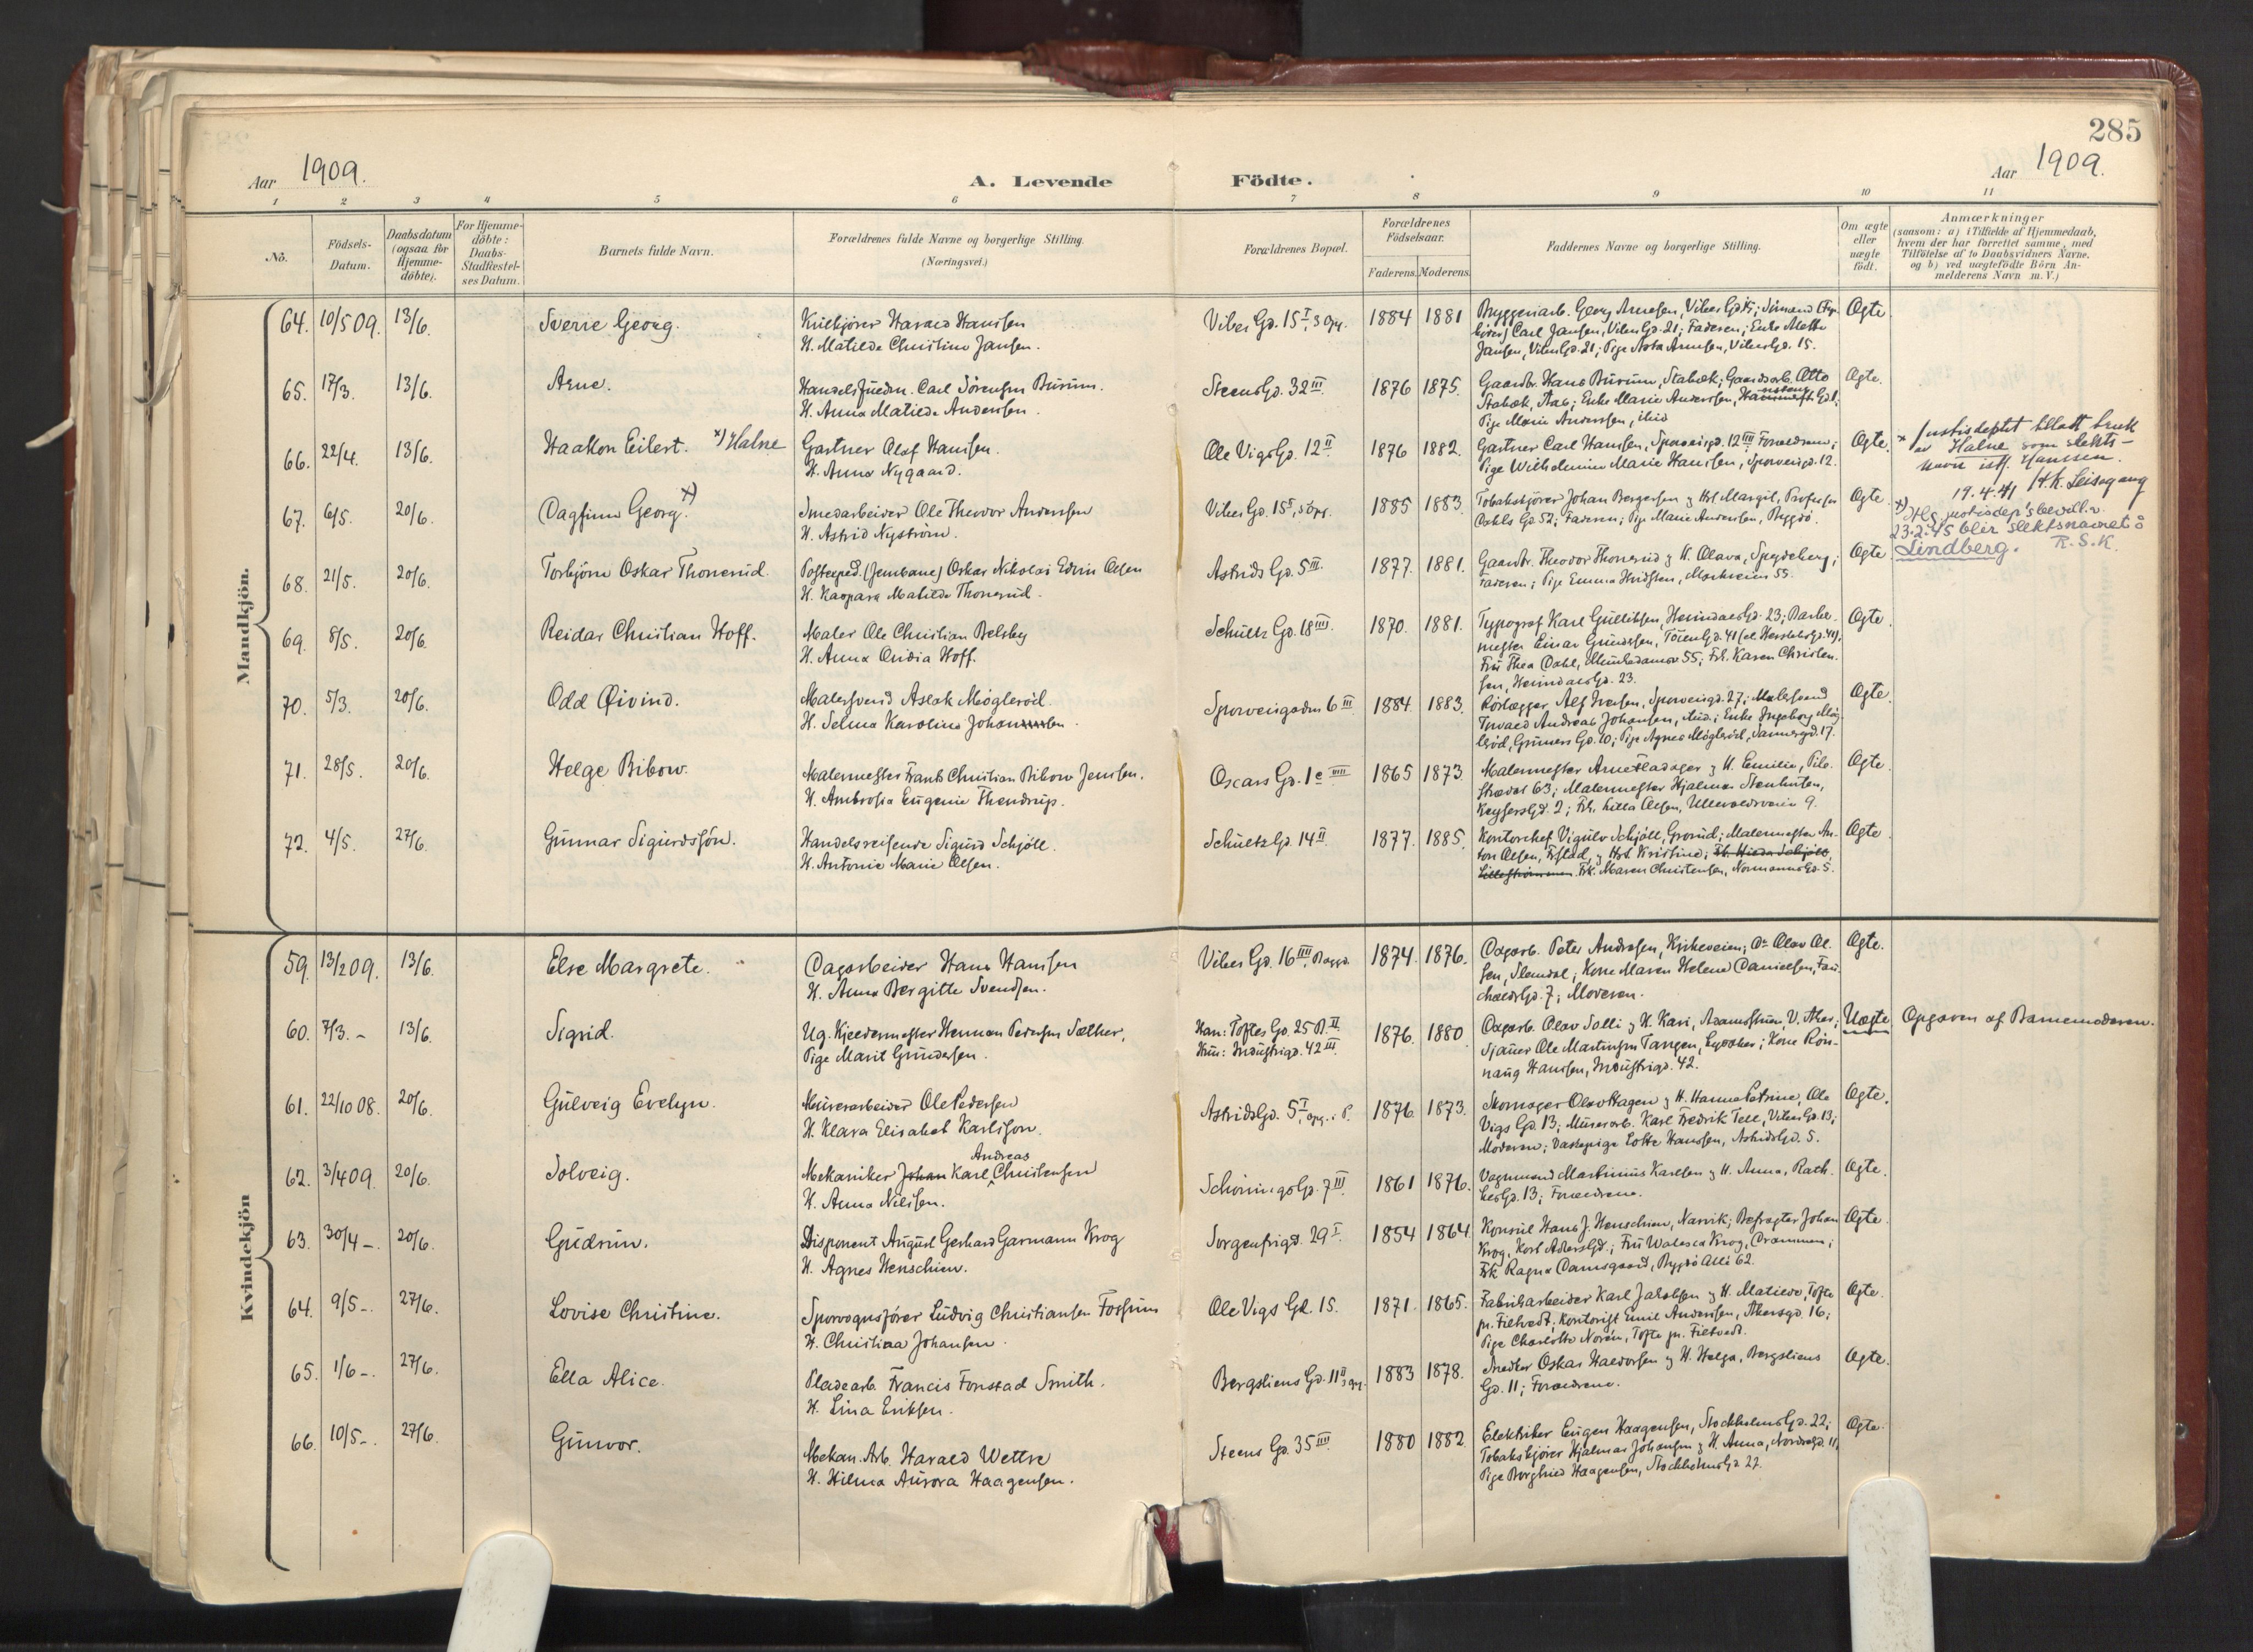 285
Aar 1909.
A. Levende Födte.
Aar 1909.
1 2 3 4 5 6 7 8 9 10 11
No.
Födsels-Datum.
Daabsdatum (ogsaa for Hjemme-döbte).
For Hjemme-döbte: Daabs-Stadfæstel-ses Datum.
Barnets fulde Navn.
Forældrenes fulde Navne og borgerlige Stilling. (Næringsvei.)
Forældrenes Bopæl.
Forældrenes Födselsaar.
Faderens. Moderens.
Faddernes Navne og borgerlige Stilling.
Om ægte eller uægte födt.
Anmærkninger
(saasom: a) i Tilfælde af Hjemmedaab,
hvem der har forrettet samme, med
Tilföielse af to Daabsvidners Navne.
og b) ved uægtefödte Börn An-
melderens Navn m. V.)
Mandkjön.
64. 10/5 09. 13/6. Sverre Georg. Kulkjörer Harald Hansen Vibes Gd. 15 I, 3 Opg. 1884 1881 Bryggeriarb. Georg Arnesen, Vibes Gd. Ægte
H. Matilde Christine Jansen. Carl Jansen, Vibes Gd. 21; Faderen; Enke Mette
Jansen, Vibes Gd. 21; Pige Asta Arnesen, Vibes Gd. 15.
65. 17/3. 13/6. Arne. Carl Sörensen Burum. Steens Gd. 32 III. 1876 1875. Gaardbr. Hans Burum, Stabæk; Gaardsarb. Otto Ægte.
H. Anna Matilde Andersen. Stabæk, Enke Marie Andersen,
Pige Marie Andersen, ibid
66. 22/4. 13/6. Haakon Eilert. x) Halne Gartner Olaf Hansen. Ole Vigs Gd. 12 II 1876 1882. Gartner Carl Hansen, Sporveisgd. 12 III Forældrene; Ægte.
H. Anna Nygaard. Pige Wilhelmine Marie Hansen, Sporveisgd. 12.
x Justisdeptet tillatt bruk
av Halne som slekts-
navn istf. Hanssen.
19.4.41 H.K. Leisegang
67. 6/5. 20/6. Dagfinn Georg. x) Smedarbeider Ole Theodor Andersen Vibes Gd. 15 I, 5 Opg. 1885 1883. Tobakskjörer Johan Bergersen & Hst Margit, Professor Ægte
H. Astrid Nyström. Dahls Gd. 52; Faderen; Pige Marie Andersen, Bygdö.
x) Iflg. justisdep's bevill. v.
23.2.45 blir slektsnavnet å
Lindberg. R.S.K.
68. 21/5. 20/6. Torbjörn Oskar Thonerud Postexped. (Jernbane) Oskar Nikolai Edvin Olsen Astrids Gd. 5 III. 1877. 1881. Gaardbr. Theodor Thonerud & H. Olava, Spydeberg; Ægte
H. Kaspara Matilde Thonerud. Faderen; Pige Emma Markveien 55.
69. 8/5. 20/6. Reidar Christian Hoff. Maler Ole Christian Belsby Schultz Gd. 18 III. 1870. 1881. Typograf Karl Gulliksen, Heimdals Gd. 23; Barber- Ægte
H. Anna Ovidia Hoff. mester Einar Gundersen, Töien Gd. 41
Fru Thea Dahl, Munkedamsv 55; Frk. Karen Christen-
sen, Heimdals Gd. 23.
70. 5/3. 20/6. Odd Øivind. Malersvend Aslak Mögleröd. Sporveisgadn 6 III 1884 1883. Rörlægger Alf Iversen, Sporveisgd. 27; Malersvend Ægte
H. Selma Karoline Johansen. Andreas Johansen, ibid.; Enke Ingeborg Mög-
leröd, Grüners Gd. 10; Pige Agnes Mögleröd, Sannergd. 17.
71. 28/5. 20/6. Helge Bibow. Malermester Frants Christian Bibow Jensen. Oscars Gd. 1 c 1865 1873 Malermester Arne & H. Emilie, Pile- Ægte
H. Ambrosia Eugenie Thendrup. strædet 63; Malermester Hjalmar Stenhusen,
Keysers Gd. 2; Frk. Lilla Olsen, Ullevoldsveien 9.
72. 4/5. 27/6. Gunnar Sigurdssön. Handelsreisende Sigurd Schjöll. Schultz Gd. 14 II 1877. 1885. Kontorchef Vigulv Schjöll, Grorud; Malermester An- Ægte
H. Antonie Marie Olsen. ton Olsen, & Hst. Kristine; Frk. Hilda Schjöll,
Lilleströmmen. Frk. Maren Christensen, Normanns Gd. 5.
Kvindekjön
59. 13/2 09. 13/6. Else Margrete. Dagarbeider Hans Hansen Vibes Gd. 16 III, Baggd. 1874. 1876. Dagarb. Peter Andersen, Kirkeveien; Do Olav Ol- Ægte.
H. Anna Bergitte Svendsen. sen, Slemdal; Kone Maren Helene Danielsen, Fau-
chalds Gd. 7; Moderen.
60. 7/3. - 13/6. Sigrid. Ug. Kjeldermester Herman Pedersen Sæther, Han: Toftes Gd. 25 B. II 1876. 1880 Dagarb. Olav Solli & H. Kari, V. Aker; Uægte Opgaven af Barnemoderen.
Pige Marit Gundersen. Hun: Industrigd. 42 III. Sjauer Ole Martinsen Tangen, Kone Rön-
naug Hansen, Industrigd. 42.
61. 22/10 08. 20/6. Gulveig Evelyn. Murerarbeider Ole Pedersen Astrids Gd. 5 I, opg. i P. 1876 1873. Skomager Olav Hagen & H. Hanne Petrine, Ole Ægte.
H. Klara Elisabet Karlsson. Vigs Gd. 13; Murerarb. Karl Fredrik Tell, Vibes Gd. 13;
Moderen; Vaskepige Lotte Hansen, Astrids Gd. 5.
62. 3/4 09. 20/6. Solveig. Mekaniker Johan Karl Andreas Christensen Schönings Gd. 7 III. 1861 1876. Vognmand Martinius Karlsen & H. Anna, Rath- Ægte.
H. Anna Nilsen. kes Gd. 13; Forældrene.
63. 30/4 -. 20/6. Gudrun. Disponent August Gerhard Garmann Krog Sorgenfrigd. 29 I. 1854 1864. Konsul Hans J. Henschien, Narvik; Befragter Johan Ægte.
H. Agnes Henschien. Krog, Kort Adlers Gd.; Fru Walesca Krog, Drammen;
Frk Ragna Damsgaard, Bygdö Allé 62.
64. 9/5 -. 27/6. Lovise Christine. Sporvognsförer Ludvig Christiansen Fossum Ole Vigs Gd. 15. 1871. 1865. Fabrikarbeider Karl Jakobsen & H. Matilde, Tofte Ægte.
H. Christina Johansen. pr. Filtvedt; Kontorist Emil Andersen, Akersgd. 16;
Pige Charlotte Norén, Tofte pr. Filtvedt.
65. 1/6 -. 27/6. Ella Alice. Pladearb. Francis Fonstad Smith. Bergsliens Gd. 11 II, 3 opg. 1883 1878. Snedker Oskar Halvorsen & H. Helga, Bergsliens Ægte.
H. Lina Eriksen. Gd. 11; Forældrene.
66. 10/5 -. 27/6. Gunvor. Mekan. Arb. Harald Wettre Steens Gd. 35 III. 1880 1882. Elektriker Eugen Haagensen, Stockholms Gd. 22; Ægte.
H. Hilma Aurora Haagensen. Tobakskjörer Hjalmar Johansen & H. Anna, Nordregd. 11,
Pige Borghild Haagensen, Stockholms Gd 22.